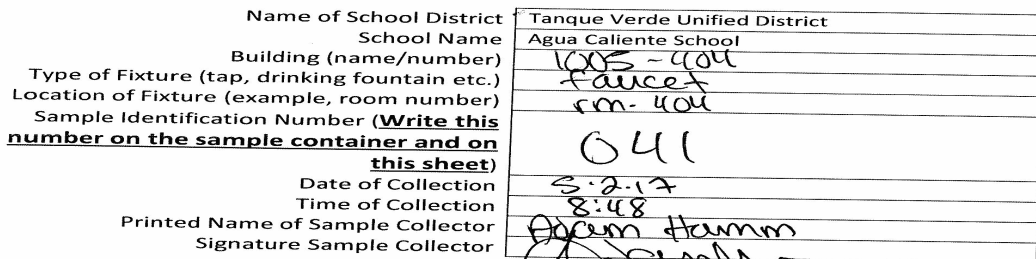 Name of School District Tanque Verde Unified District
School Name Agua Caliente School
Building (name/number) 1005-404
Type of Fixture (tap, drinking fountain etc.) faucet
Location of Fixture (example, room number) rm-404
Sample Identification Number (Write this
number on the sample container and on
this sheet) 041
Date of Collection 5.2.17
Time of Collection 8:48
Printed Name of Sample Collector Adam Hamm
Signature Sample Collector